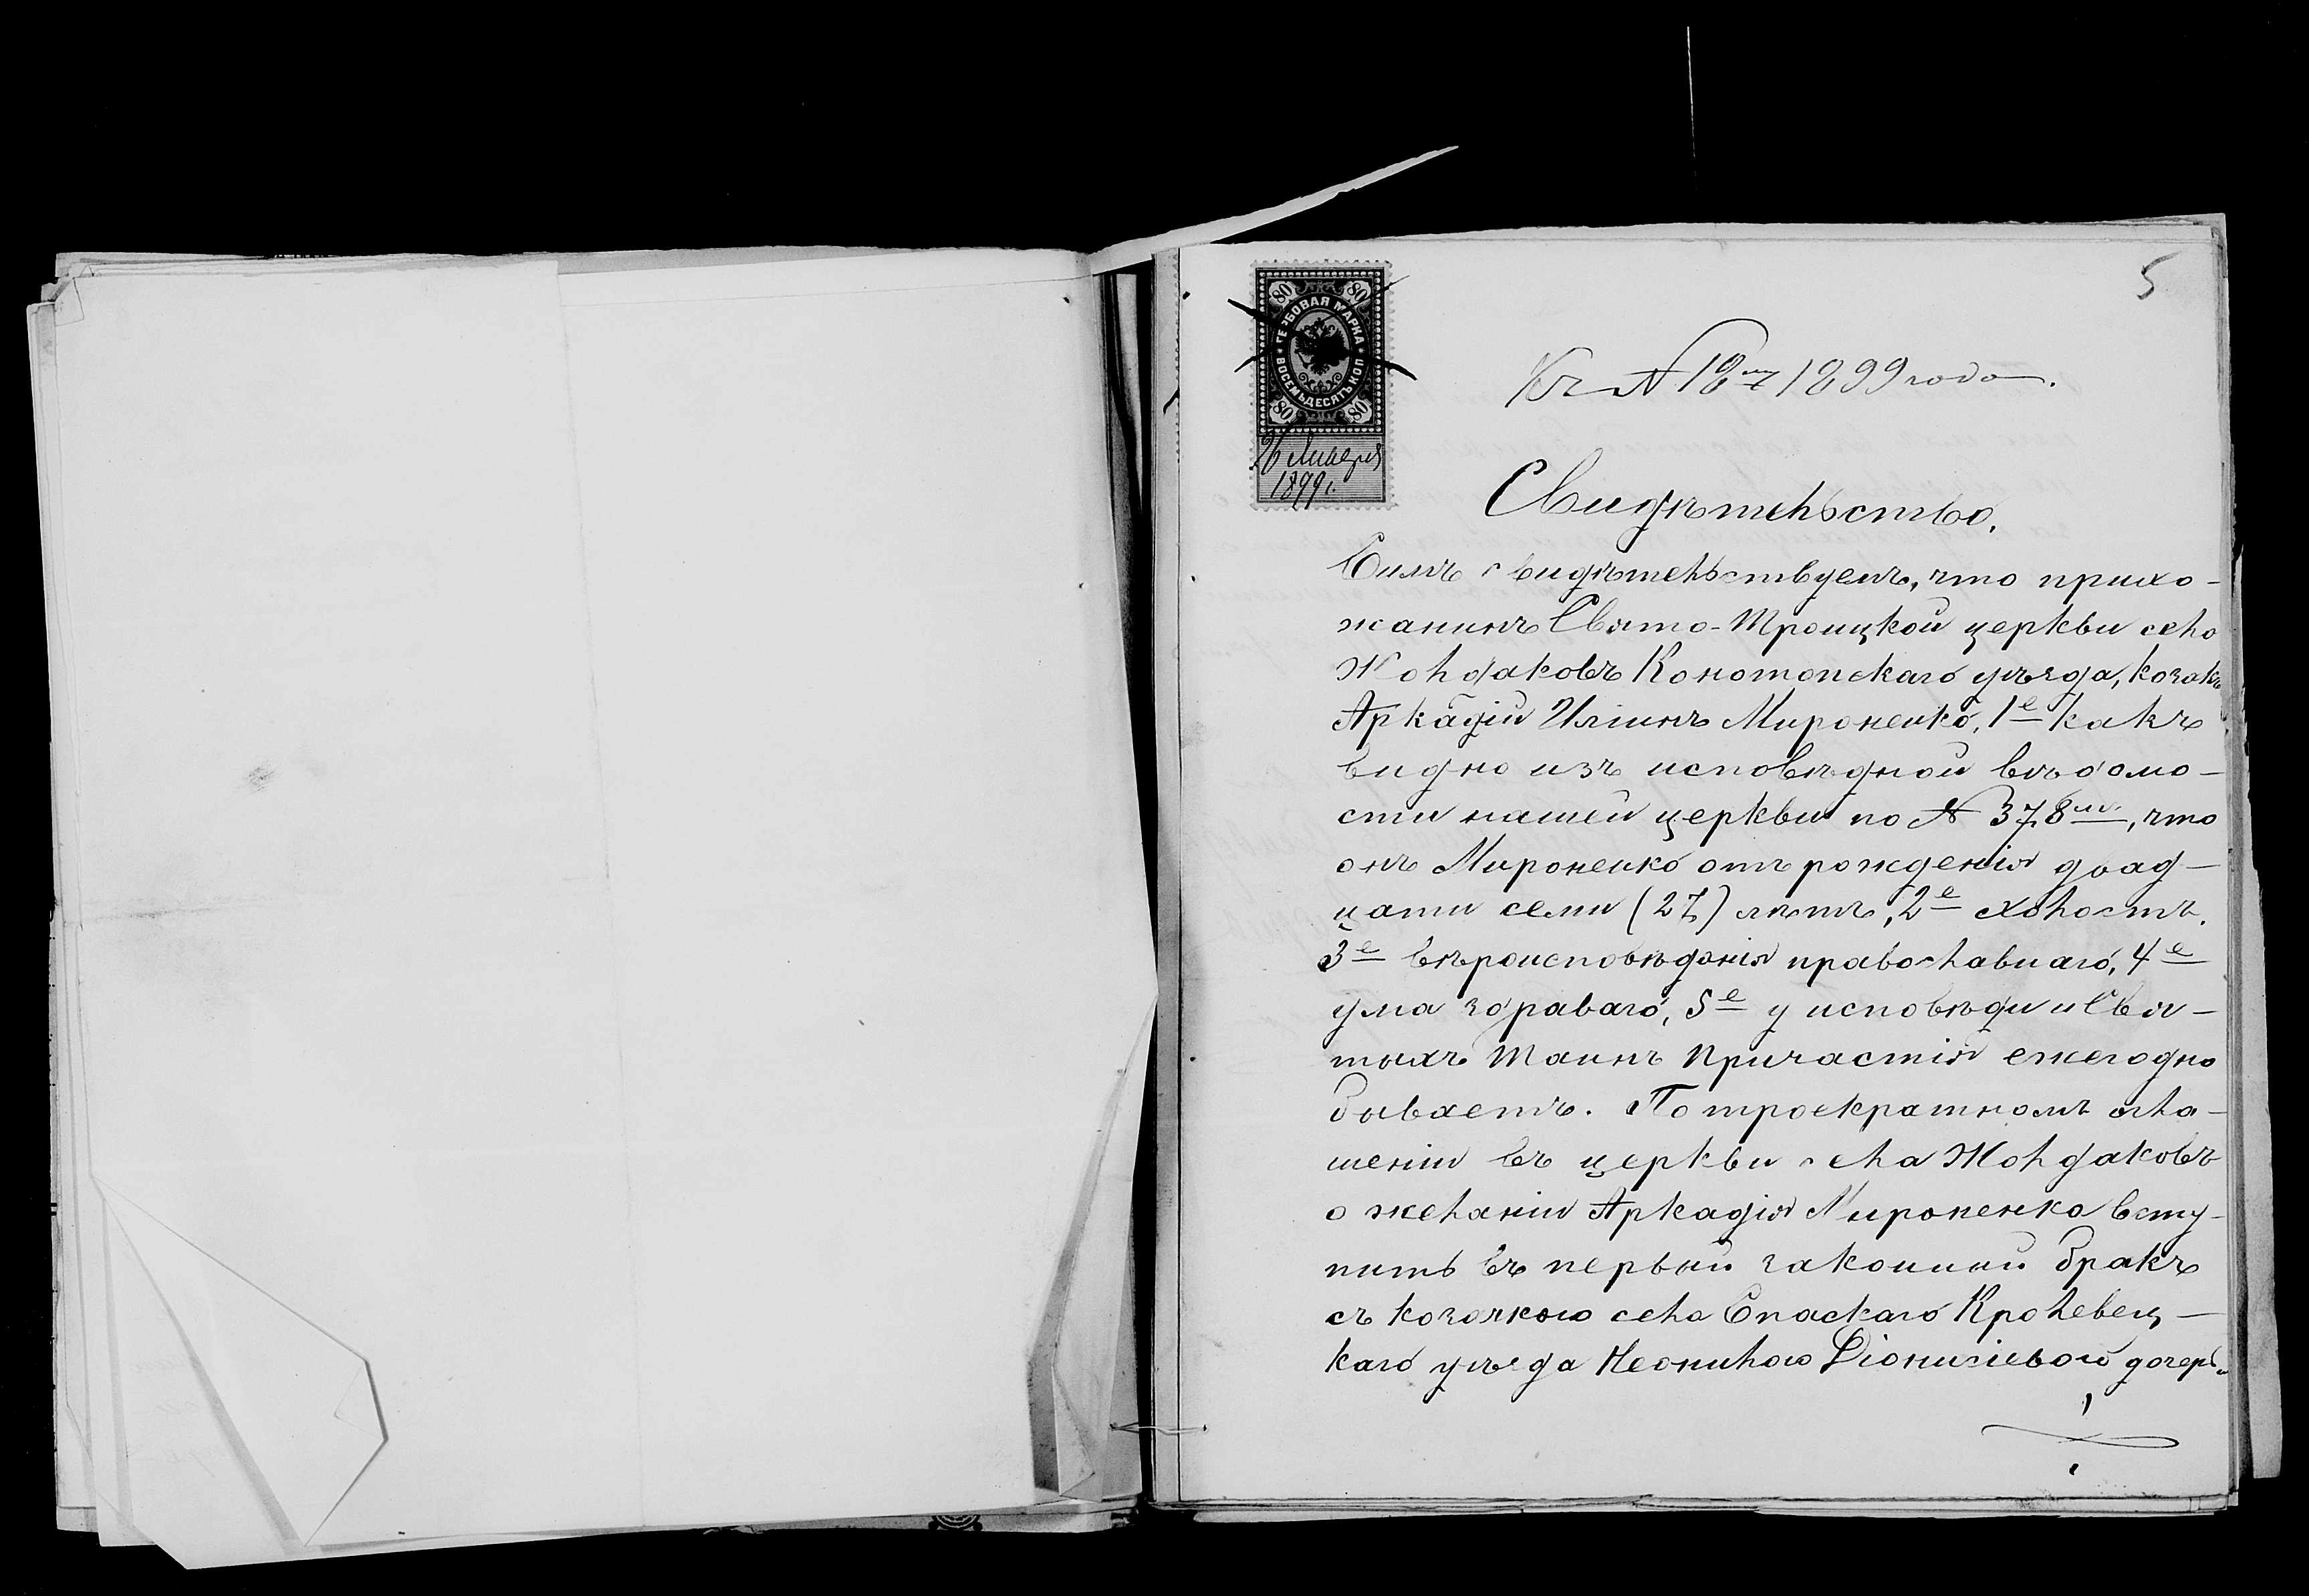 5
80 80
ГЕРБОВАЯ МАРКА
ВОСЕМЬДЕСЯТЬ КОП
80 80
26 Января
1899 г.
Къ № 18му 1899 года.
Свидѣтельство.
Симъ свидѣтельствуемъ, что прихо-
жанинъ Свято-Троицкой церкви села
Жолдаковъ Конотопскаго уѣзда, козакъ
Аркадій Иліинъ Мироненко, 1е какъ
видно изъ исповѣдной вѣдомо-
сти нашей церкви по № 378му, что
онъ Мироненко отъ рожденія двад-
цати семи (27) лѣтъ, 2е холостъ.
3е вѣроисповѣданія православнаго, 4е
ума здраваго, 5е у исповѣди и Свя-
тыхъ Таинъ Причастія ежегодно
бываетъ. По троекратномъ огла-
шеніи въ церкви села Жолдаковъ
о желаніи Аркадія Мироненка всту-
пить въ первый законный бракъ
съ козачкою села Спаскаго Кролевец-
каго уѣзда Неонилою Діонисіевою дочерью